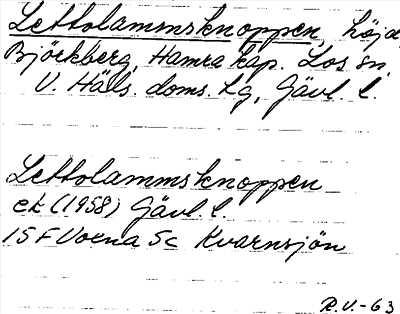 Lettolammsknoppen, höjd,
Björkberg, Hamra kap. Los sn,
V. Häls. doms. hg, Gävl. l.
Lettolammsknoppen
ek (1958) Gävl. l.
15 F Voxna Sc Kvarnsjön
R.V.-63